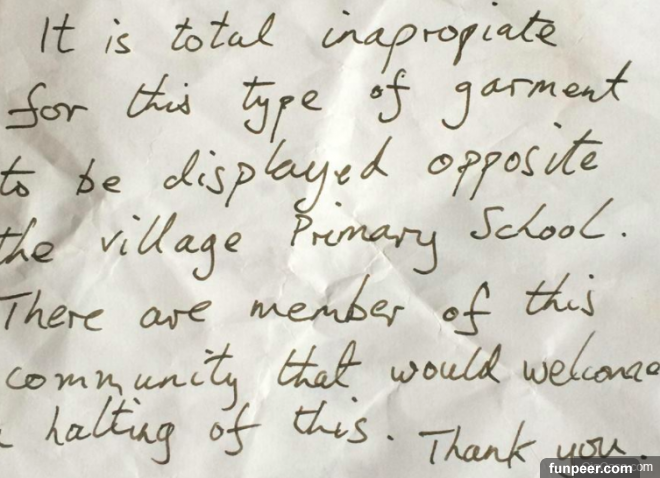 It is total inapropiate
for this type of garment
to be displayed opposite
the village Primary School.
There are member of this
community that would welcome
halting of this. Thank you.
funpeer.com